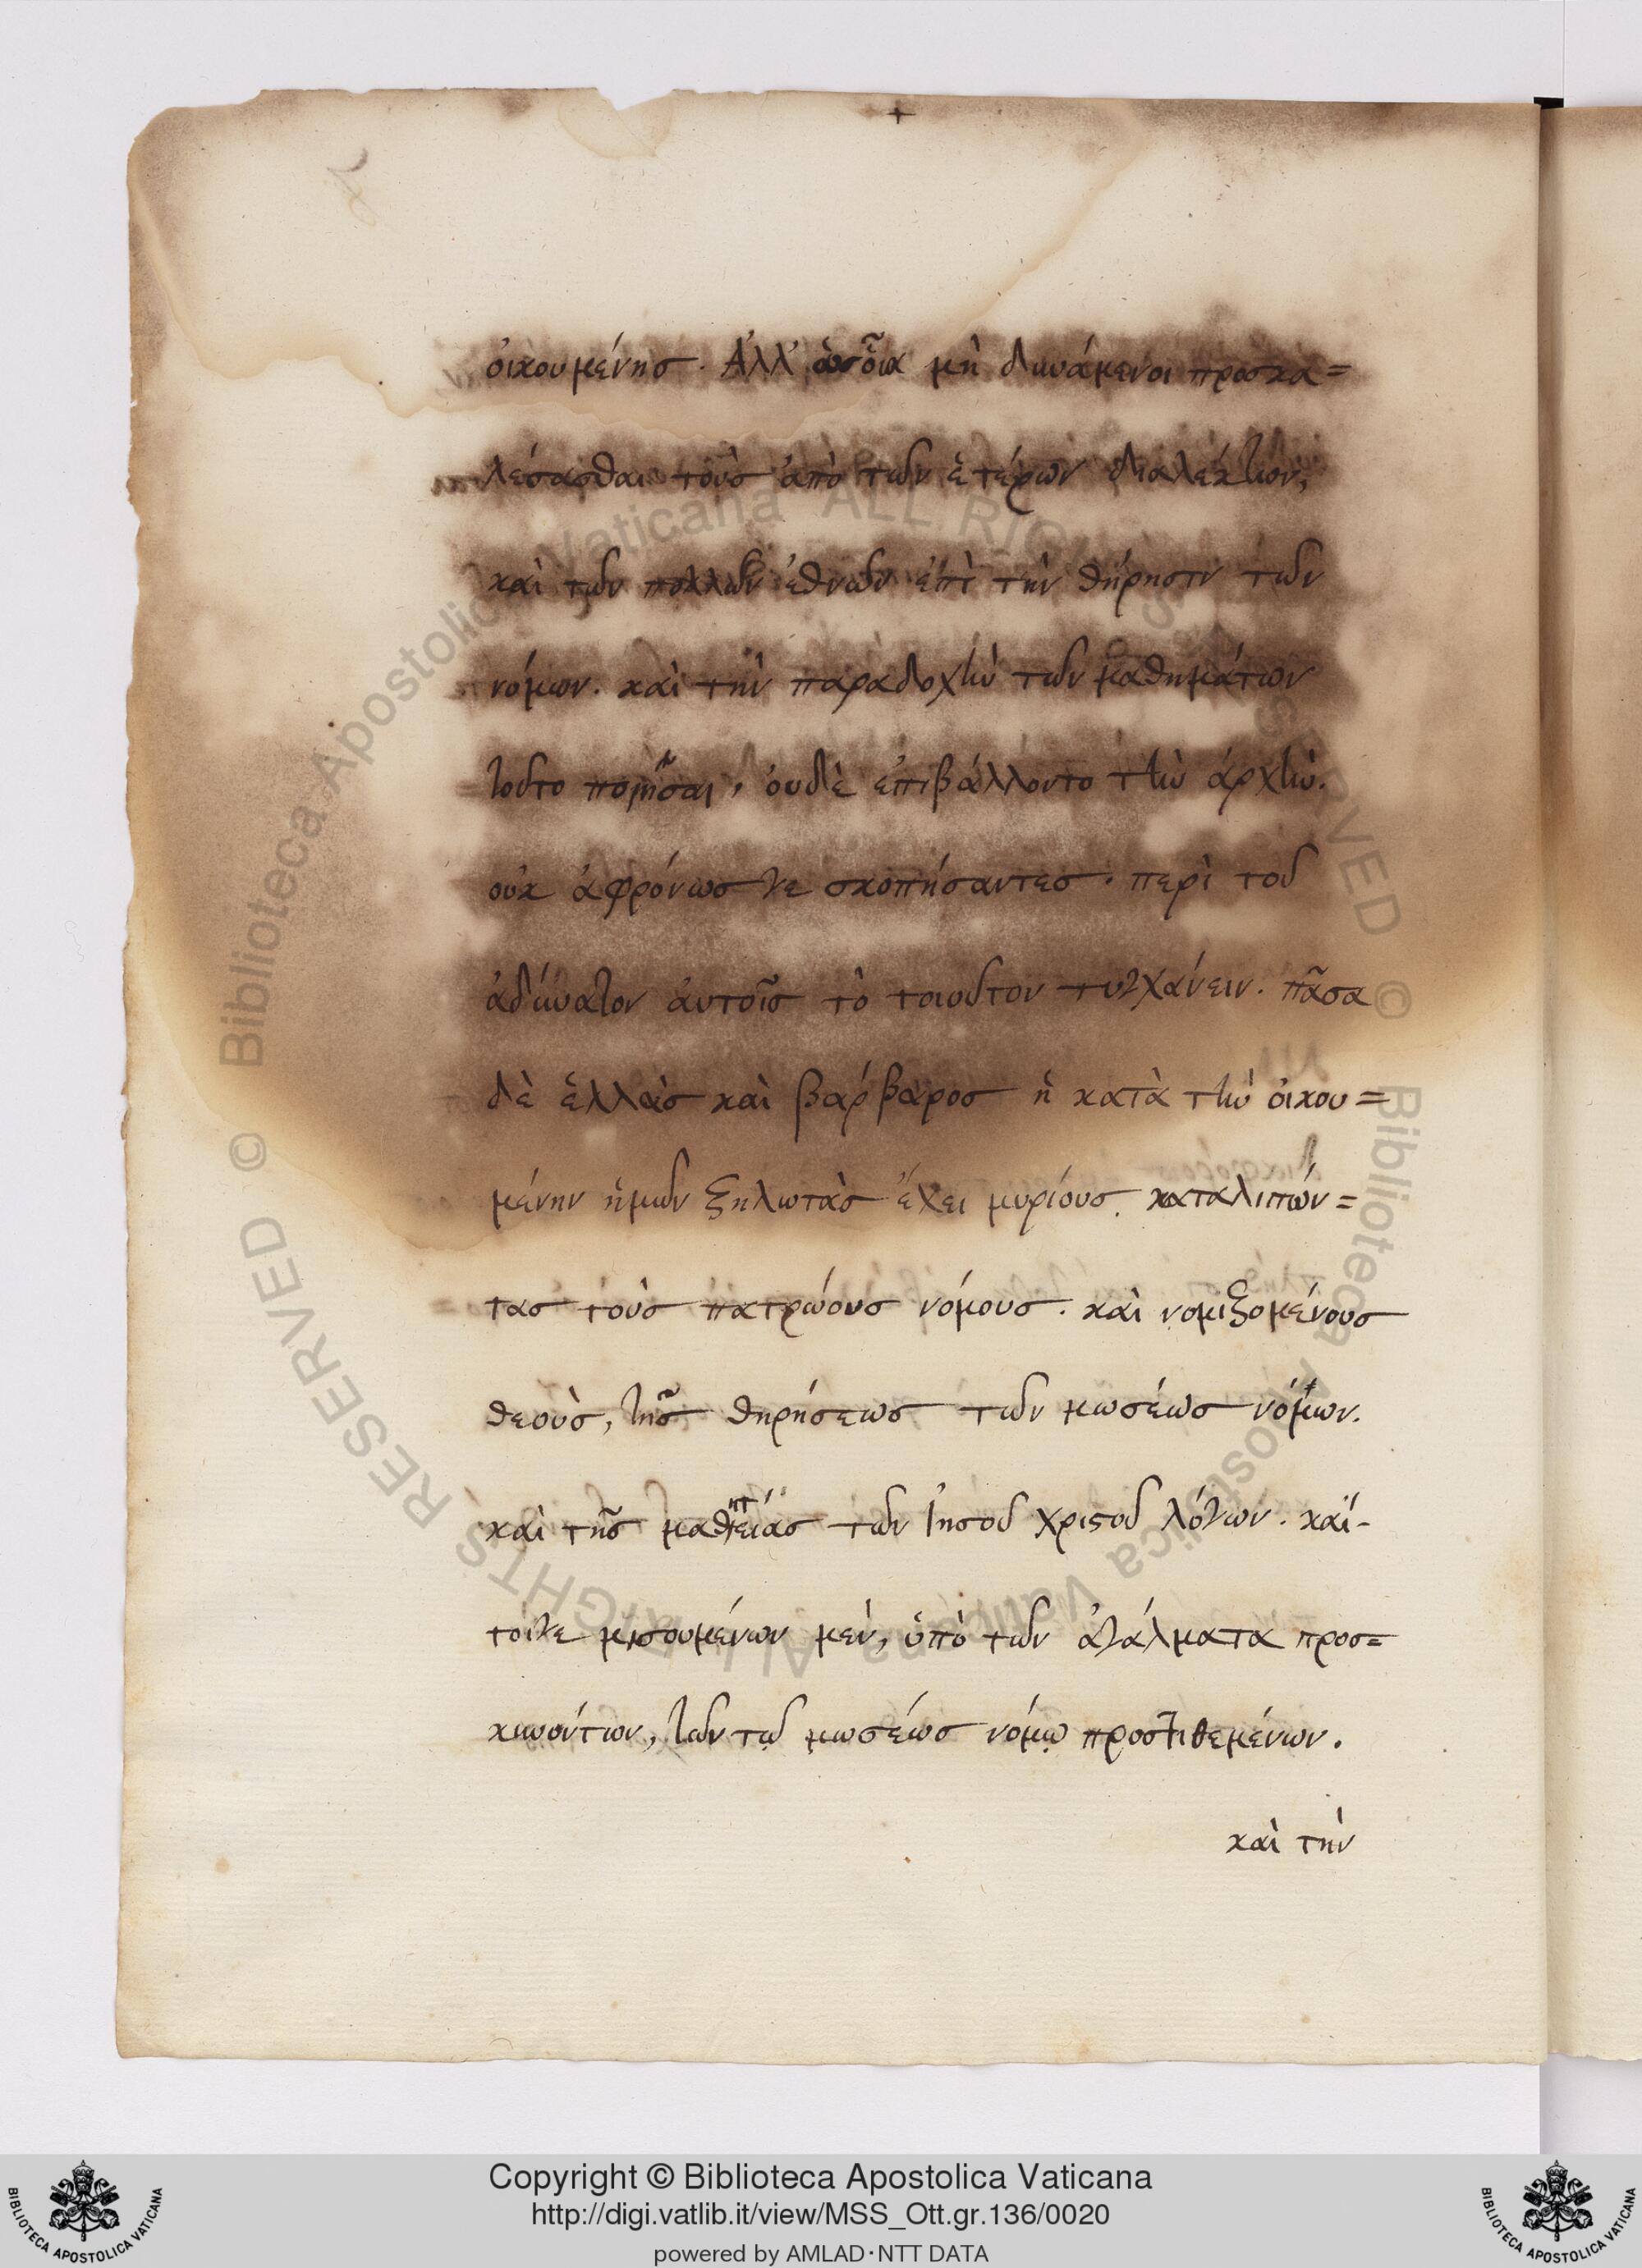 οἰκουμένησ. Ἀλλ' ὡσοῖα μὴ δυνάμενοι προσκα=
λέσασθαι τοὺσ ἀπὸ τῶν ἑτέρων διαλέκτων,
καὶ τῶν πολλῶν ἐθνῶν ἐπὶ τὴν θήρησιν τῶν
νόμων. καὶ τὴν παραδοχὴν τῶν μαθημάτων
τοῦτο ποιῆσαι, ὀυδὲ ἐπιβάλλοντο τὴν ἀρχὴν.
οὐκ ἀφρόνωσ γε σκοπήσαντεσ. περὶ τοῦ
ἀδύνατον ἀυτοῖσ τὸ τοιοῦτον τυγχάνειν. πᾶσα
δὲ ἑλλὰσ καὶ βάρβαροσ ἡ κατὰ τὴν ὀικου=
μένην ἡμῶν ζηλωτὰσ ἔχει μυρίουσ. καταλιπόν=
τασ τοὺσ πατρώουσ νόμουσ. καὶ νομιζομένουσ
θεοὺσ, τῆσ θηρήσεωσ τῶν μωσέωσ νόμων.
καὶ τῆσ μαθητείασ τῶν Ἰησοῦ χριστοῦ λόγων. καί-
τοιγε μισουμένων μὲν, ὑπὸ τῶν ἀγάλματα προσ=
κυνούντων, τῶν τῷ μωσέωσ νόμῳ προστιθεμένων.
καὶ τὴν
Copyright © Biblioteca Apostolica Vaticana
http://digi.vatlib.it/view/MSS_Ott.gr.136/0020
powered by AMLAD·NTT DATA
BIBLIOTECA APOSTOLICA VATICANA
BIBLIOTECA APOSTOLICA VATICANA
© Biblioteca Apostolica Vaticana ALL RIGHTS RESERVED © Biblioteca Apostolica Vaticana ALL RIGHTS RESERVED